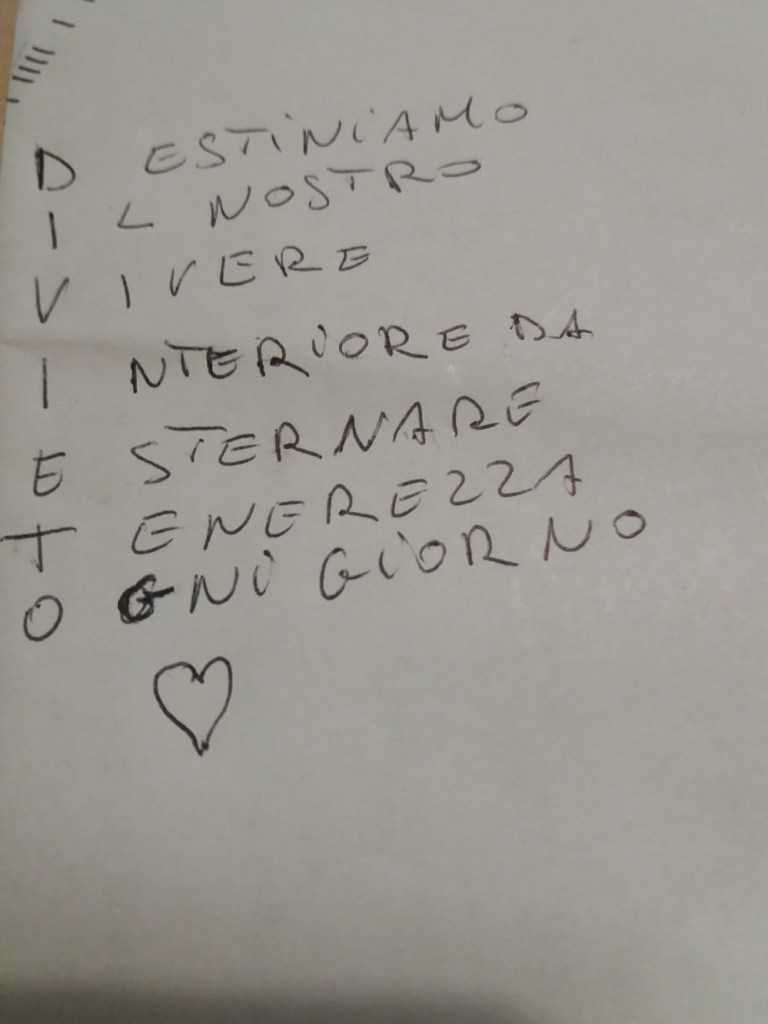 D ESTINIAMO
I L NOSTRO
V IVERE
I NTERIORE DA
E STERNARE
T ENEREZZA
O GNI GIORNO